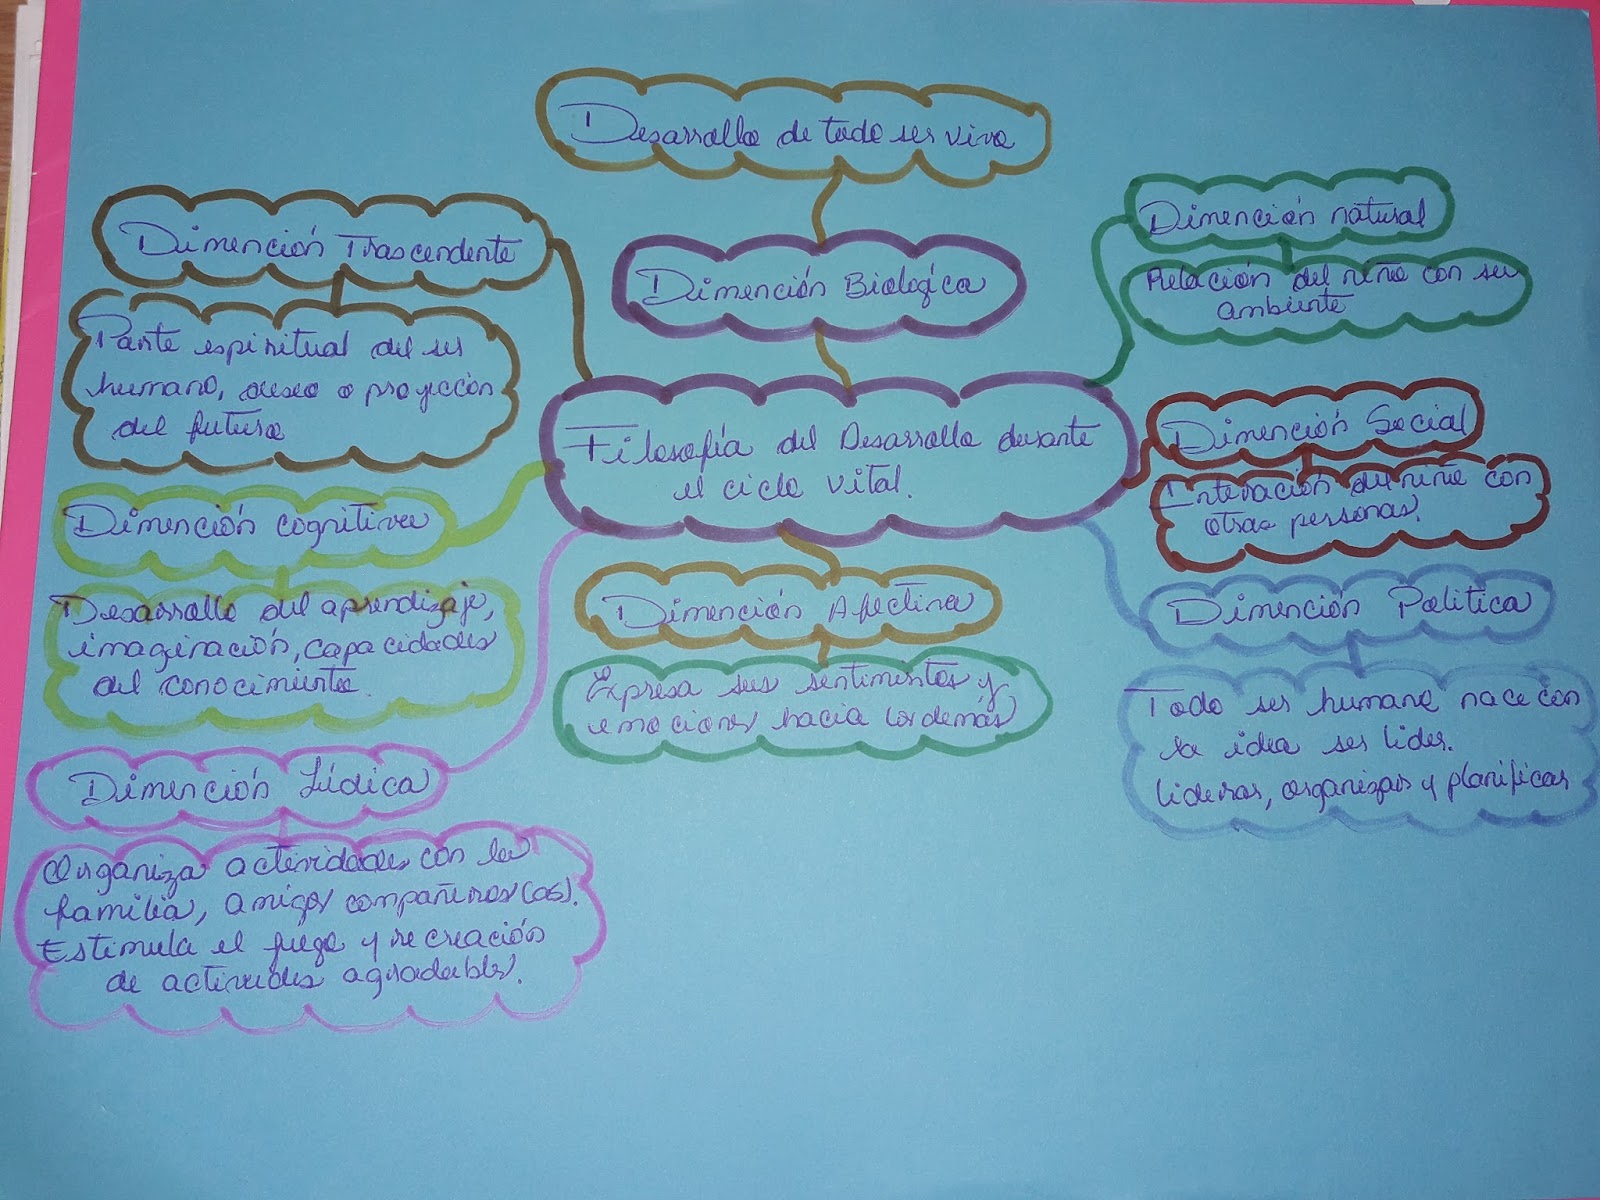 Desarrollo de todo ser vivo
Dimención Biológica
Dimención Trascendente
Parte espiritual del ser
humano, deseo o proyección
del futuro
Dimención natural
Relación del niño con su
ambiente
Filosofía del Desarrollo durante
el ciclo vital.
Dimención Social
Interación del niño con
otras personas.
Dimención cognitiva
Desarrollo del aprendizaje,
imaginación, capacidades
del conocimiento.
Dimención Afectiva
Expresa sus sentimientos y
emociones hacia los demás
Dimención Politica
Todo ser humano nace con
la idea ser lider.
liderar, organizar y planificar
Dimención Lúdica
Organiza actividades con la
familia, amigos compañeros(as).
Estimula el juego y recreación
de activides agradables.